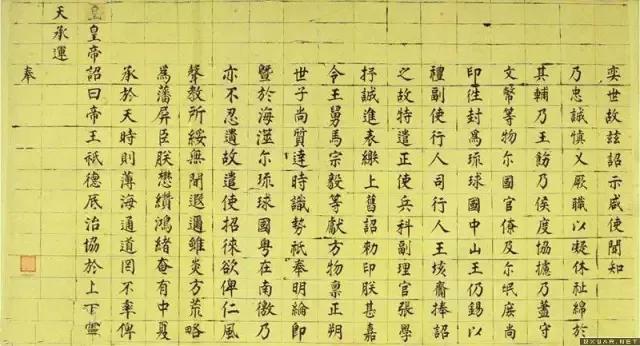 奉
天承運
皇皇帝詔曰帝王祗德厎治協於上下靈
承於天時則薄海通道罔不率俾
爲藩屏臣朕懋纘鴻緒奄有中夏
聲教所綏無間遐邇雖炎方荒略
亦不忍遺故遣使招徠欲俾仁風
暨於海澨尔琉球國粤在南徼乃
世子尚質達時識勢祗奉明綸即
令王舅馬宗毅等獻方物稟正朔
抒誠進表繳上舊詔勅印朕甚嘉
之故特遣正使兵科副理官張學
禮副使行人司行人王垓齎捧詔
印徃封爲琉球國中山王仍錫以
文幣等物尔國官僚及尔氓庶尚
其輔乃王飭乃侯度協攄乃藎守
乃忠誠慎乂厥職以凝休祉綿於
奕世故茲詔示咸使聞知